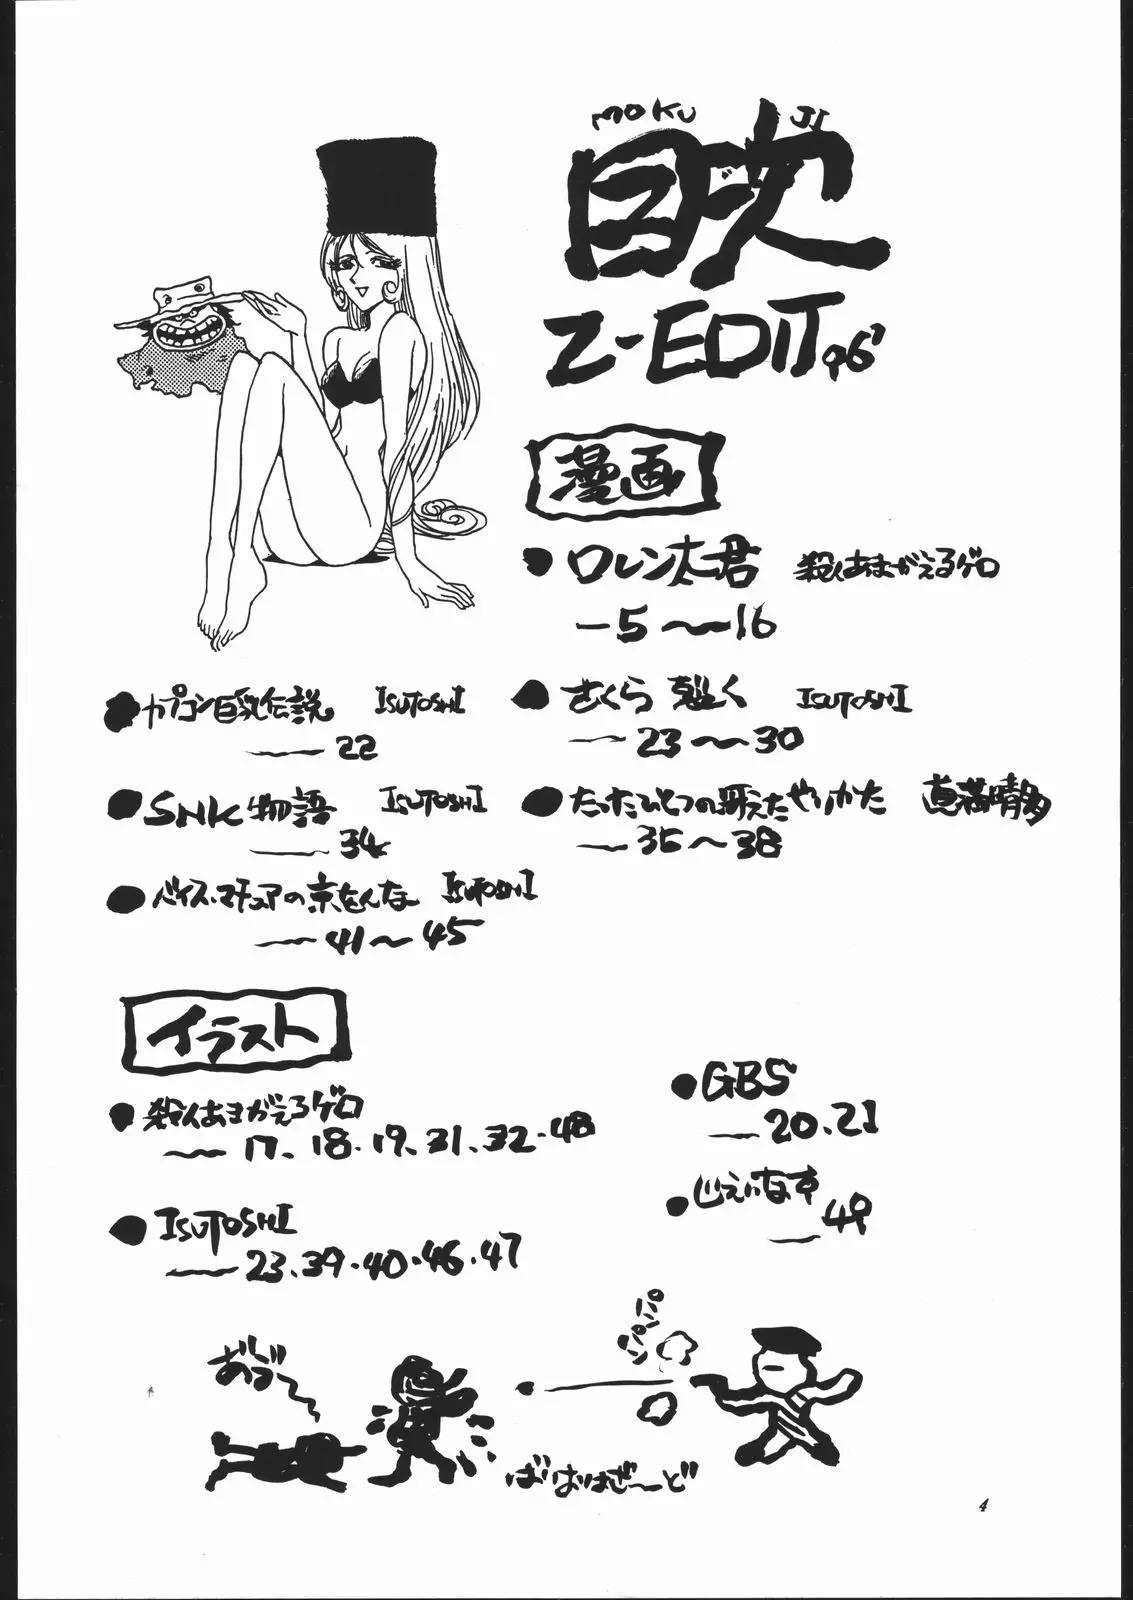 MOKU JI
目次
Z-EDIT96'
漫画
●ロレン太君 殺人あまがえるゲロ
—5〜16
●カプコン巨乳伝説 ISUTOSHI
—22
●さくら 襲く ISUTOSHI
—23〜30
●SNK物語 ISUTOSHI
—34
●たったひとつの冴えたやりかた 真満晴多
—35〜38
●バイス・マチュアの京をんな ISUTOSHI
—41〜45
イラスト
●殺人あまがえるゲロ
—17、18・19、31、32・48
●GBS
—20、21
●ISUTOSHI
—23、39・40・46・47
●じえいなす
—49
パンパンパン
あ゛う゛〜
ばいおはざーど
4